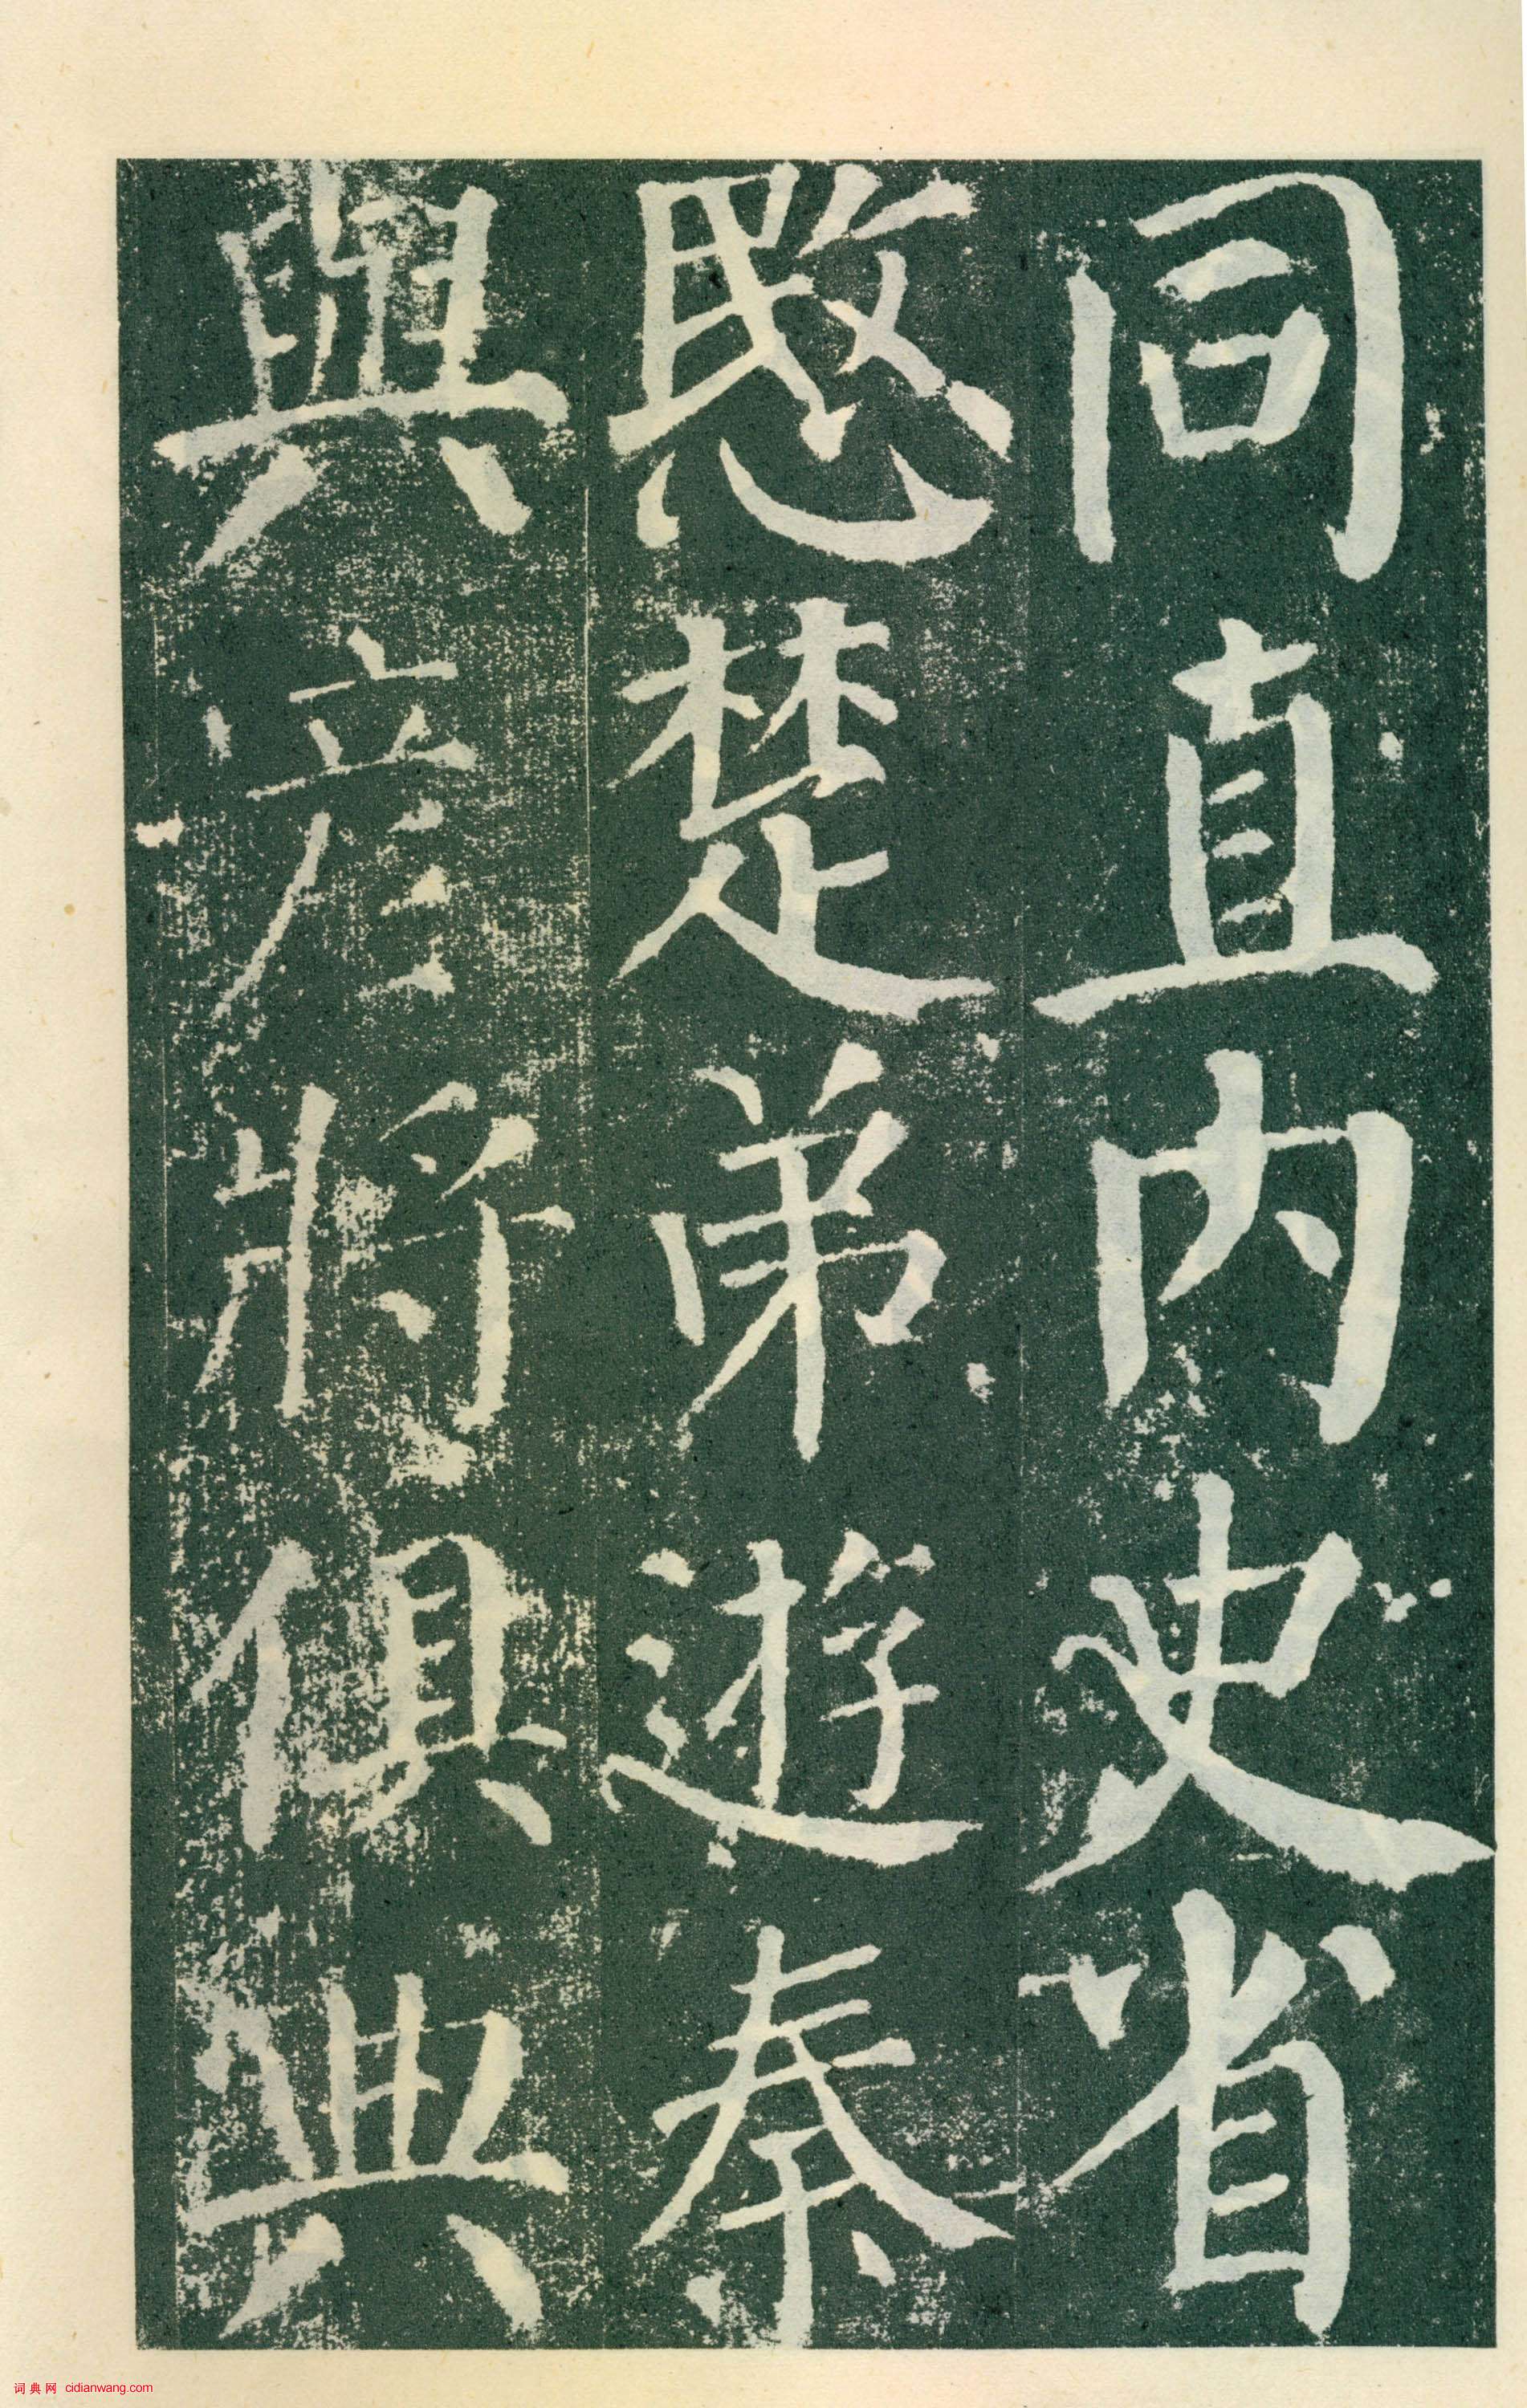 同直內史省
愍楚弟遊秦
與彦將俱典
词典网 cidianwang.com